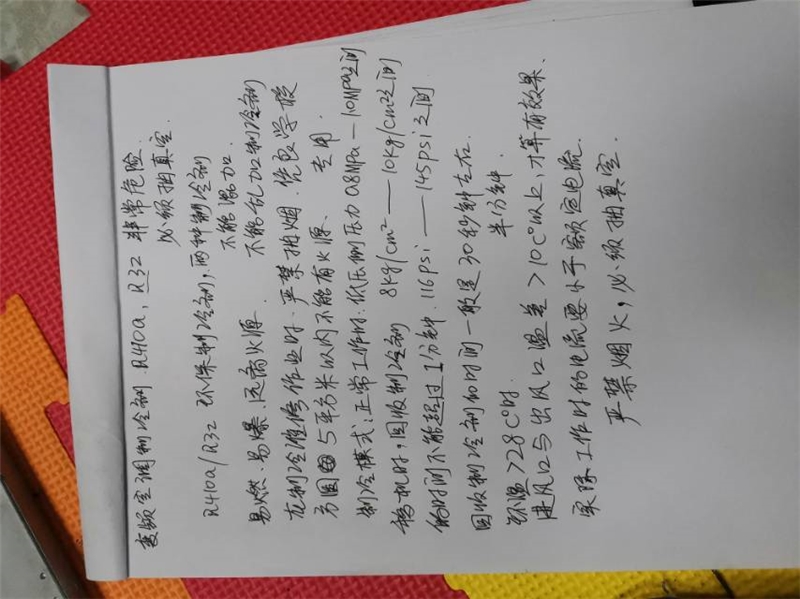 变频空调制冷剂.R410a,R32 非常危险.
必须抽真空.
R410a/R32 环保制冷剂,两种制冷剂
不能混加.
易燃.易爆.远离火源. 不能乱加制冷剂
在制冷维修作业时.严禁抽烟.优良学校
方圆 5平方米以内不能有火源. 专用.
制冷模式:正常工作时.低压侧压力0.8MPa—1.0MPa之间
移机时,回收制冷剂 8kg/cm²—10kg/cm²之间
的时间不能超过1分钟. 116psi—145psi之间
回收制冷剂的时间一般是30秒钟左右.
半分钟.
环温>28C°时.
进风口与出风口温差>10C°以上,才算有效果.
实际工作时的电流要小于额定电流.
严禁烟火,必须抽真空.